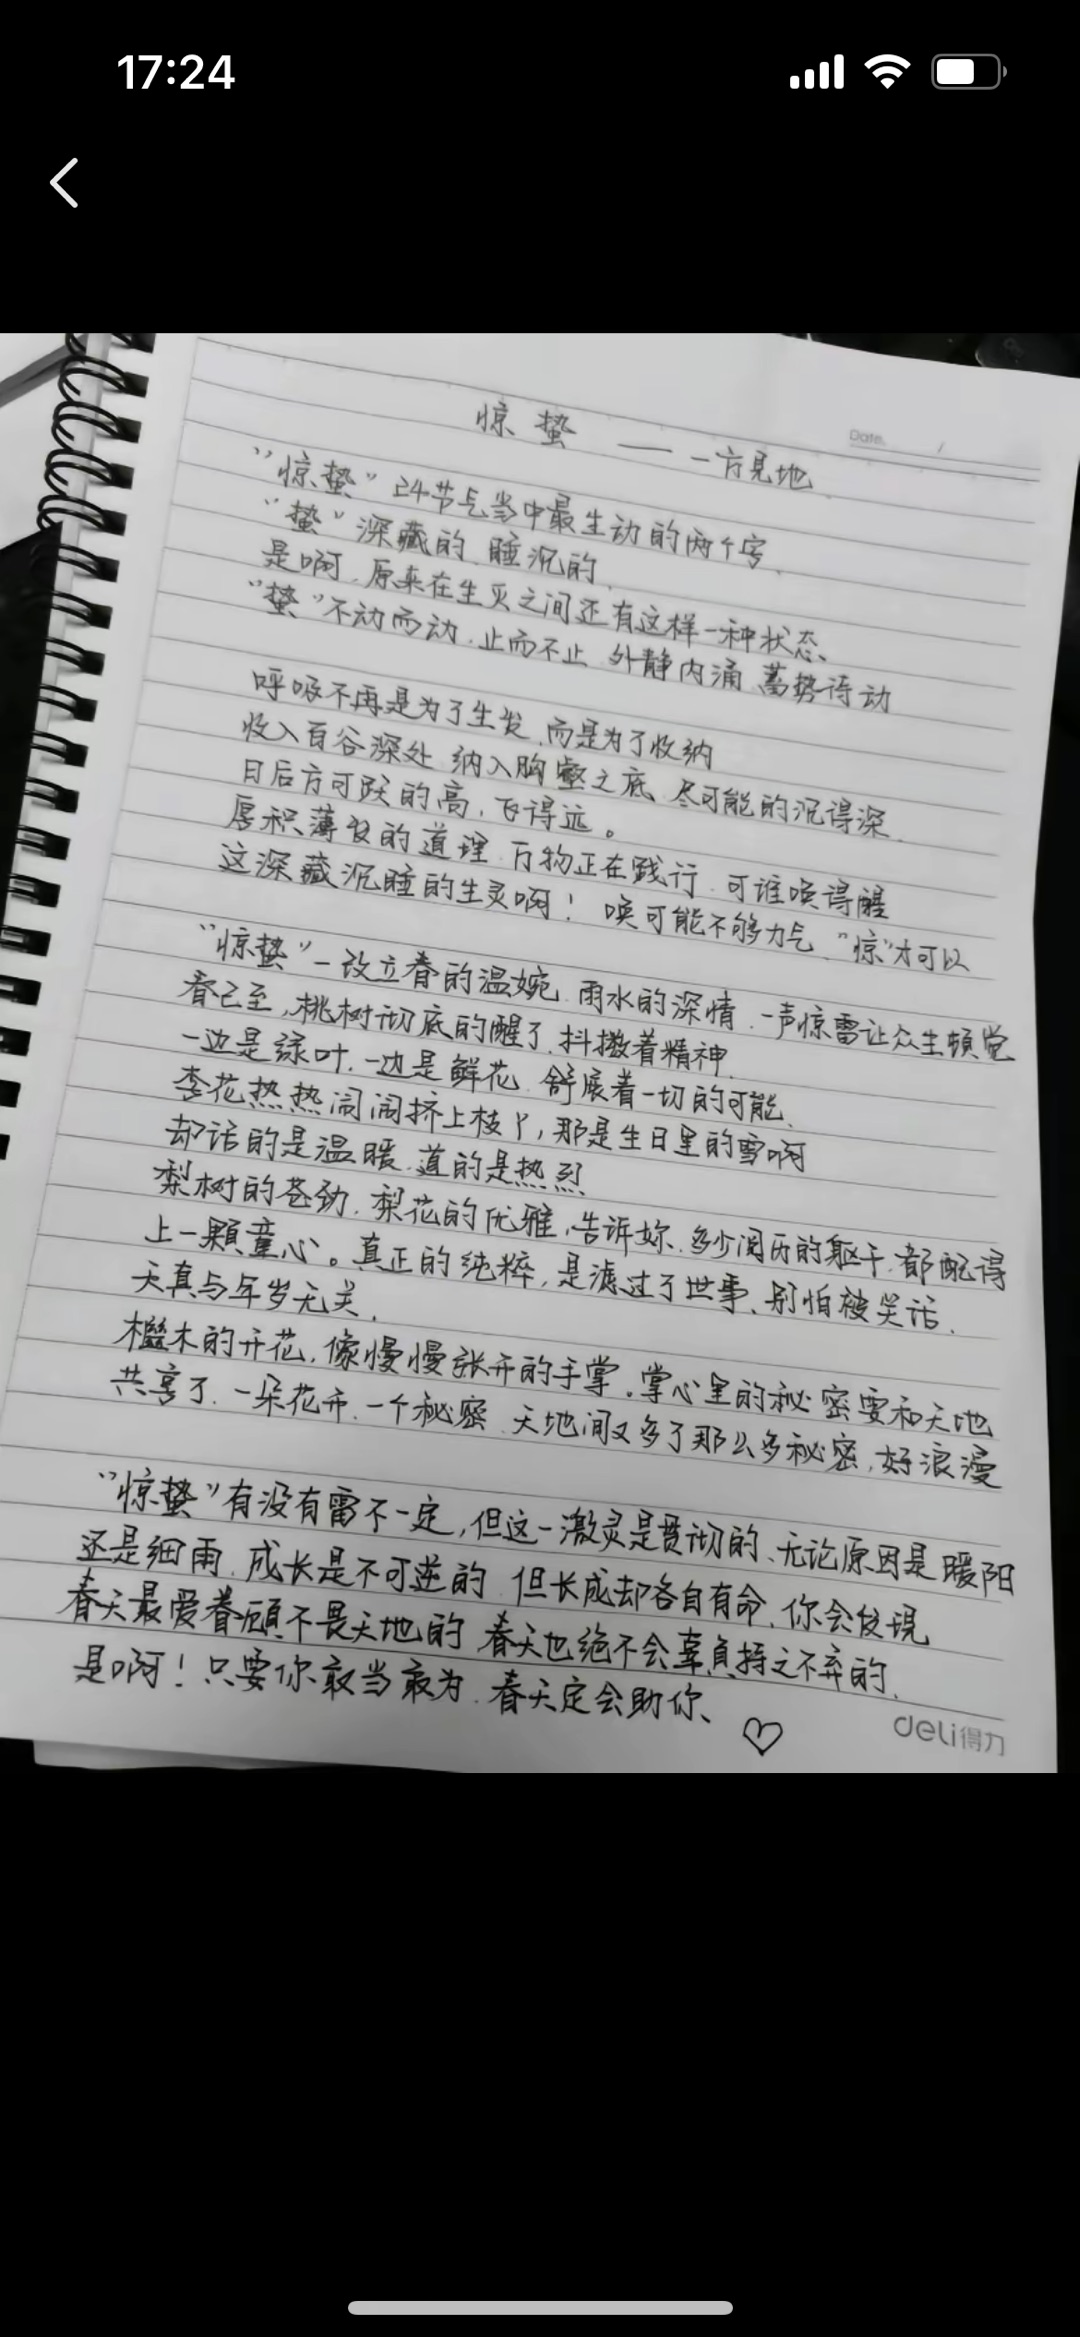 17:24
Date. /
惊蛰 —— 一方见地
"惊蛰" 24节气当中最生动的两个字、
"蛰" 深藏的、睡沉的、
是啊、原来在生灭之间还有这样一种状态、
"蛰"不动而动、止而不止 外静内涌、蓄势待动
呼吸不再是为了生发、而是为了收纳
收入百谷深处 纳入胸壑之底、尽可能的沉得深、
日后方可跃的高,飞得远。
厚积薄发的道理、万物正在践行、可谁唤得醒
这深藏沉睡的生灵啊! 唤可能不够力气 "惊"才可以
"惊蛰"一改立春的温婉、雨水的深情、一声惊雷让众生顿觉
春已至,桃树彻底的醒了、抖擞着精神、
一边是绿叶,一边是鲜花、舒展着一切的可能、
李花热热闹闹挤上枝丫,那是生日里的雪啊
却话的是温暖、道的是热烈、
梨树的苍劲,梨花的优雅,告诉妳、多少阅历的躯干,都配得
上一颗童心。真正的纯粹,是滤过了世事、别怕被笑话、
天真与年岁无关、
檵木的开花,像慢慢张开的手掌。掌心里的秘密要和天地
共享了、一朵花开、一个秘密、天地间又多了那么多秘密,好浪漫
"惊蛰"有没有雷不一定,但这一激灵是贯彻的、无论原因是暖阳
还是细雨、成长是不可逆的、但长成却各自有命、你会发现
春天最爱眷顾不畏天地的 春天也绝不会辜负持之不弃的、
是啊! 只要你敢当敢为、春天定会助你、
deli得力